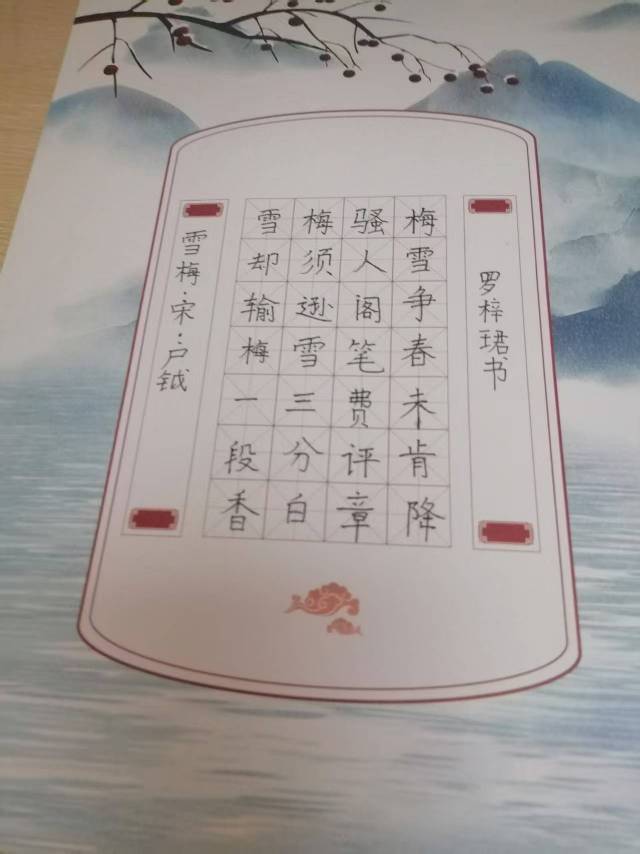 罗梓珺书
梅雪争春未肯降
骚人阁笔费评章
梅须逊雪三分白
雪却输梅一段香
雪梅·宋:户钺